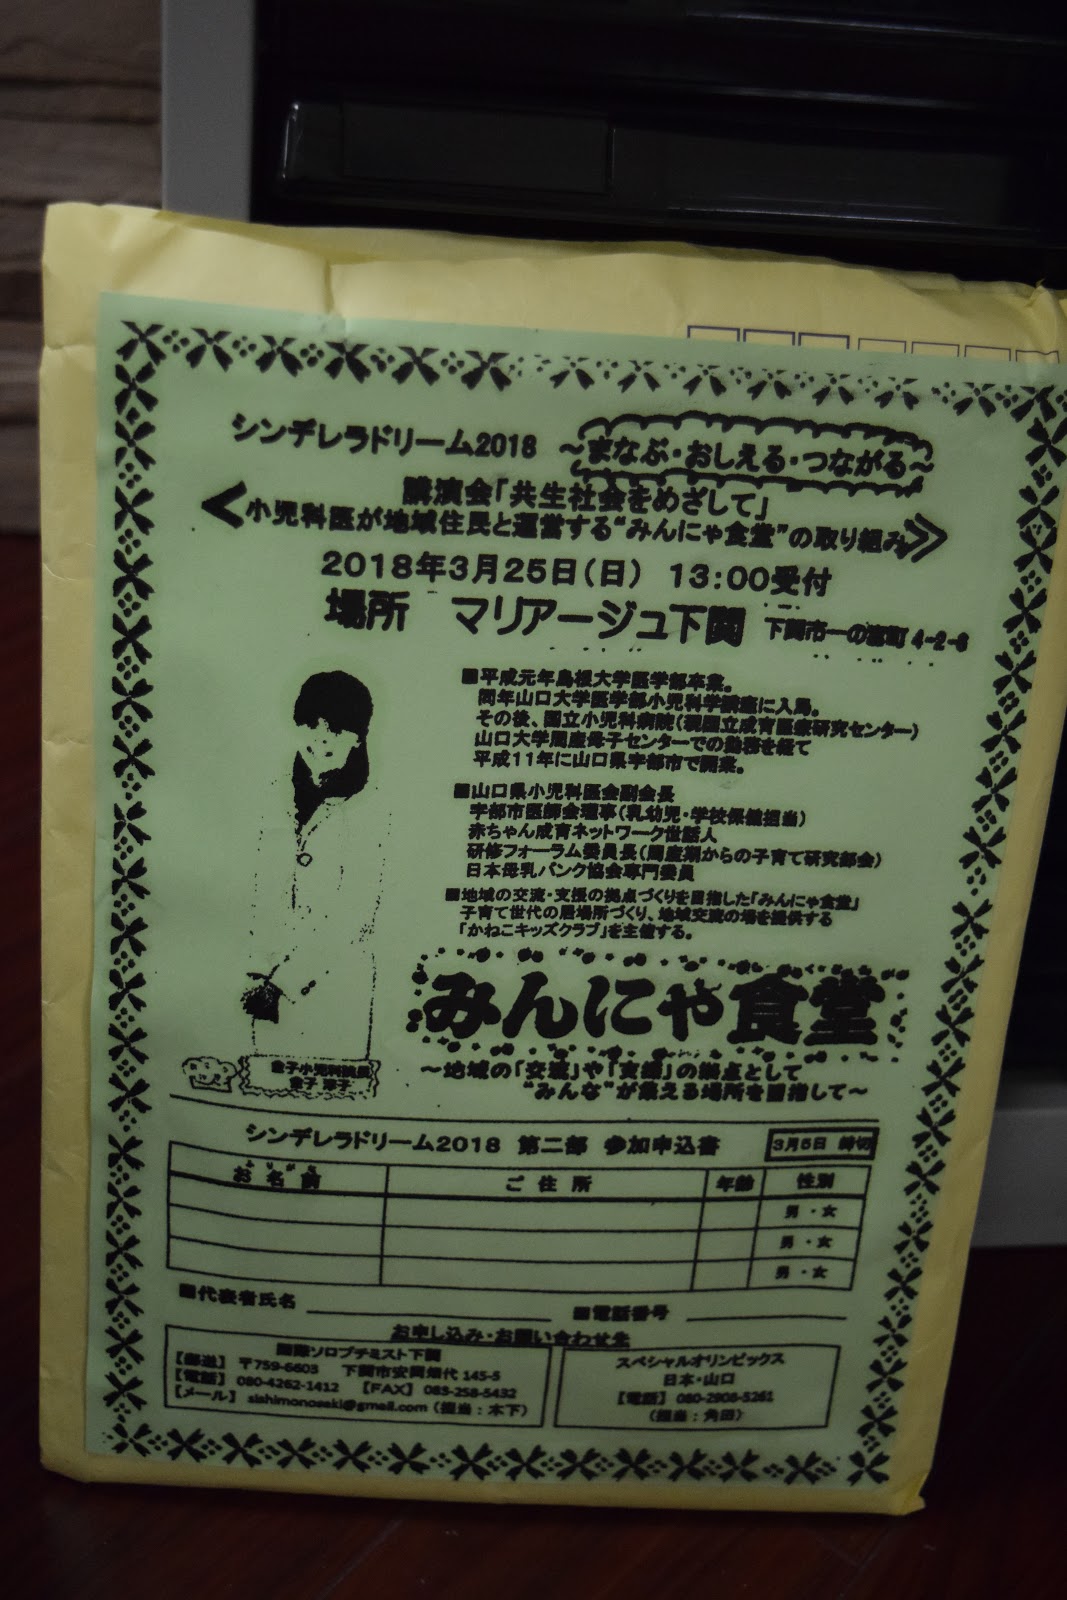 シンデレラドリーム2018 ～まなぶ・おしえる・つながる～
講演会「共生社会をめざして」
≪小児科医が地域住民と運営する“みんにゃ食堂”の取り組み≫
2018年3月25日(日) 13:00受付
場所 マリアージュ下関 下関市一の宮町 4-2-8
■平成元年島根大学医学部卒業。
同年山口大学医学部小児科学講座に入局。
その後、国立小児科病院(現国立成育医療研究センター)
山口大学周産母子センターでの勤務を経て
平成11年に山口県宇部市で開業。
■山口県小児科医会副会長
宇部市医師会理事(乳幼児・学校保健担当)
赤ちゃん成育ネットワーク世話人
研修フォーラム委員長(周産期からの子育て研究部会)
日本母乳バンク協会専門委員
■地域の交流・支援の拠点づくりを目指した「みんにゃ食堂」
子育て世代の居場所づくり、地域交流の場を提供する
「かねこキッズクラブ」を主催する。
みんにゃ食堂
～地域の「交流」や「支援」の拠点として
“みんな”が集える場所を目指して～
金子小児科院長
金子 淳子
シンデレラドリーム2018 第二部 参加申込書 3月6日 締切
ふりがな
お名前 ご住所 年齢 性別
男・女
男・女
男・女
■代表者氏名 ■電話番号
お申し込み・お問い合わせ先
国際ソロプチミスト下関
【郵送】 〒759-6603 下関市安岡畑代 145-5
【電話】 080-4262-1412 【FAX】 083-258-5432
【メール】 sishimonoseki@gmail.com (担当：木下)
スペシャルオリンピックス
日本・山口
【電話】 080-2908-5261
(担当：角田)